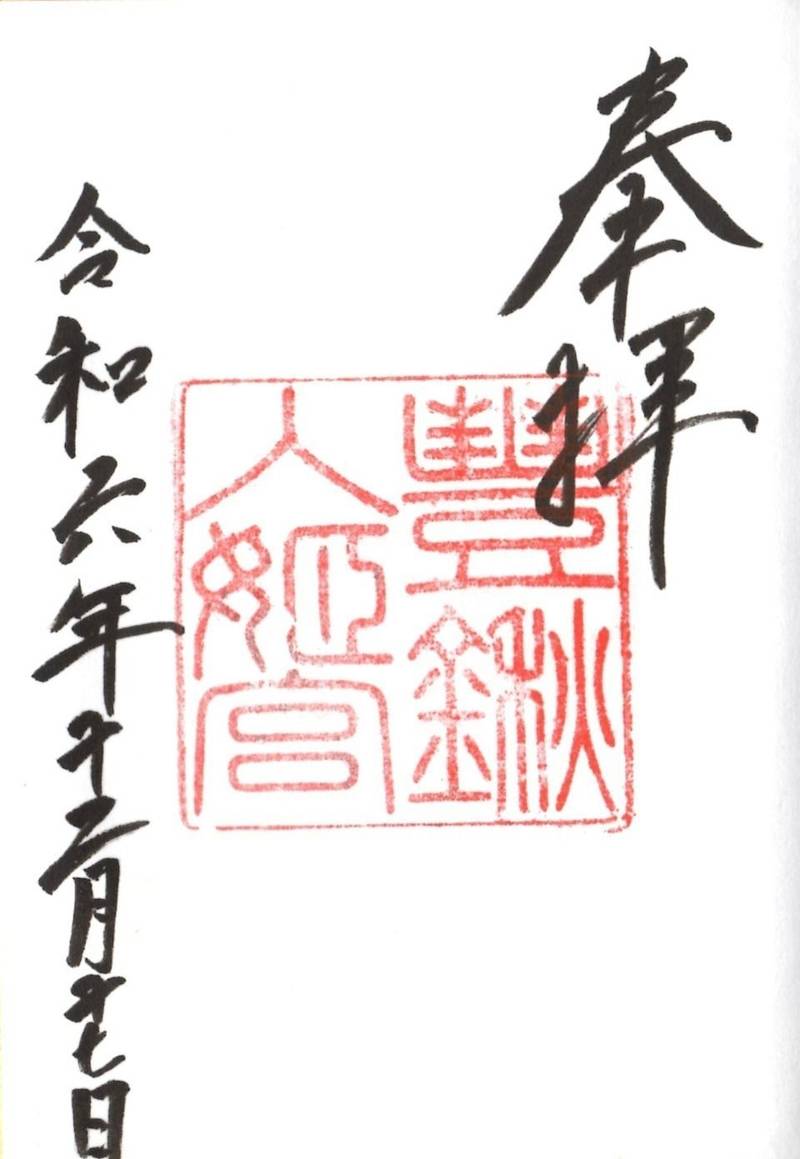 奉拝
豐鍬
入姫宮
令和六年十二月十七日